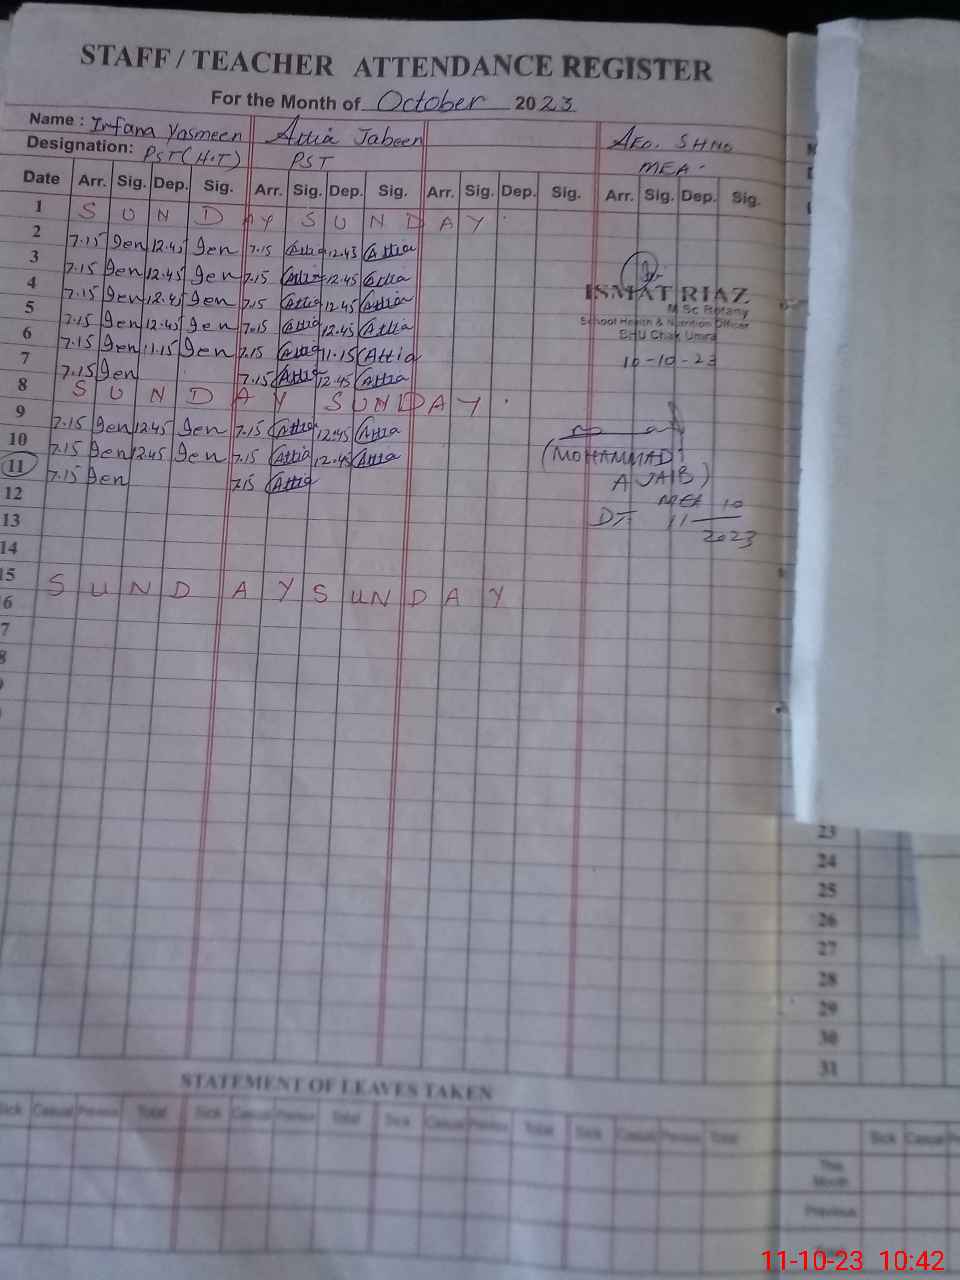 STAFF / TEACHER ATTENDANCE REGISTER
For the Month of October 2023
Name : Irfana Yasmeen Attia Jabeen AEO. SHNO
Designation: PST(H.T) PST MEA.
Date Arr. Sig. Dep. Sig. Arr. Sig. Dep. Sig. Arr. Sig. Dep. Sig. Arr. Sig. Dep. Sig.
1 S U N D A Y S U N D A Y
2 7.15 12.45 7.15 Attia 12.45 Attia
3 7.15 12.45 7.15 Attia 12.45 Attia
4 7.15 12.45 7.15 Attia 12.45 Attia
5 7.15 12.45 7.15 Attia 12.45 Attia
6 7.15 11.15 7.15 Attia 11.15 Attia
7 7.15 7.15 Attia 12.45 Attia
8 S U N D A Y S U N D A Y
9 7.15 12.45 7.15 Attia 12.45 Attia
10 7.15 12.45 7.15 Attia 12.45 Attia
11 7.15 7.15 Attia
12
13
14
15 S U N D A Y S U N D A Y
6
7
8
ISMAT RIAZ
M.Sc Botany
School Health & Nutrition Officer
BHU Chak Umra
10-10-23
(MOHAMMAD
AJAIB)
MEA 10
DT 11
2023
23
24
25
26
27
28
29
30
31
STATEMENT OF LEAVES TAKEN
Sick Casual Previous Total Sick Casual Previous Total Sick Casual Previous Total Sick Casual Previous Total Sick Casual
This
Month
Previous
11-10-23 10:42